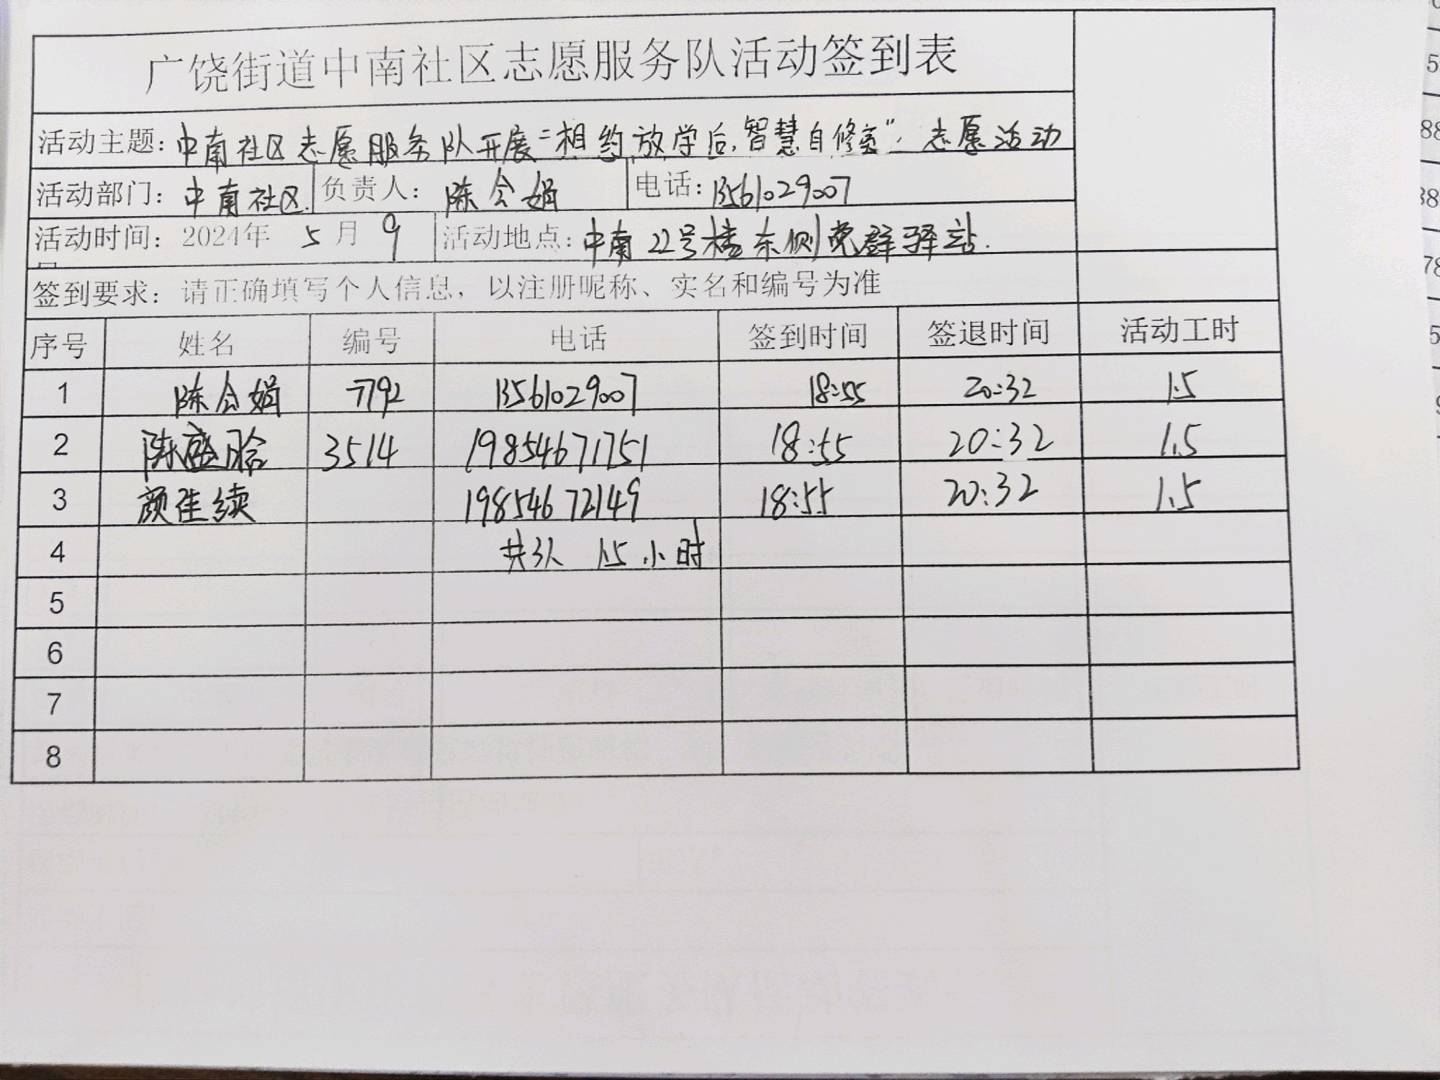 广饶街道中南社区志愿服务队活动签到表
活动主题: 中南社区志愿服务队开展“相约放学后,智慧自修室”志愿活动
活动部门: 中南社区 负责人: 陈会娟 电话: 13561029007
活动时间: 2024年 5月 9 活动地点: 中南22号楼东侧党群驿站.
签到要求: 请正确填写个人信息，以注册昵称、实名和编号为准
序号 姓名 编号 电话 签到时间 签退时间 活动工时
1 陈会娟 7792 13561029007 18:55 20:32 1.5
2 陈盛晗 3514 19854671751 18:55 20:32 1.5
3 颜佳续 19854672149 18:55 20:32 1.5
4 共3人 1.5小时
5
6
7
8